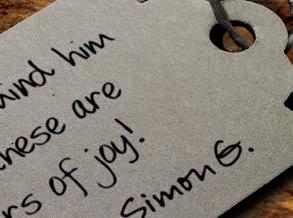 mind him
these are
of joy!
Simon G.